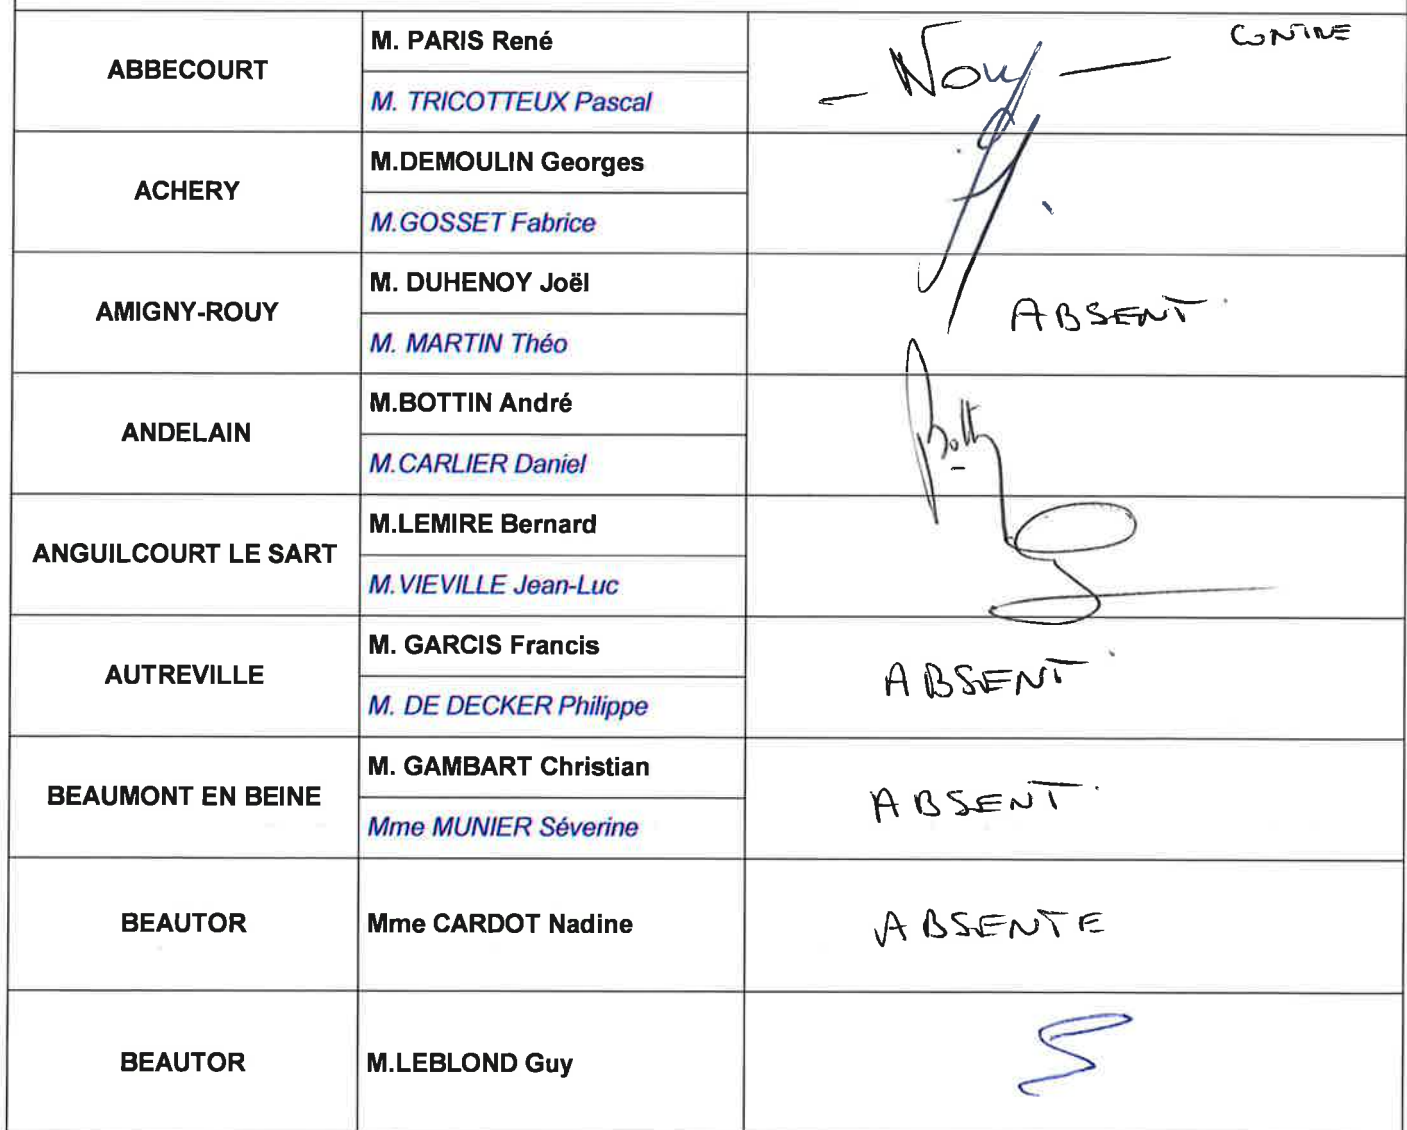 ABBECOURT
M. PARIS René
M. TRICOTTEUX Pascal
CONTRE
ACHERY
M.DEMOULIN Georges
M.GOSSET Fabrice
AMIGNY-ROUY
M. DUHENOY Joël
M. MARTIN Théo
ABSENT.
ANDELAIN
M.BOTTIN André
M.CARLIER Daniel
ANGUILCOURT LE SART
M.LEMIRE Bernard
M.VIEVILLE Jean-Luc
AUTREVILLE
M. GARCIS Francis
M. DE DECKER Philippe
ABSENT.
BEAUMONT EN BEINE
M. GAMBART Christian
Mme MUNIER Séverine
ABSENT.
BEAUTOR
Mme CARDOT Nadine
ABSENTE
BEAUTOR
M.LEBLOND Guy